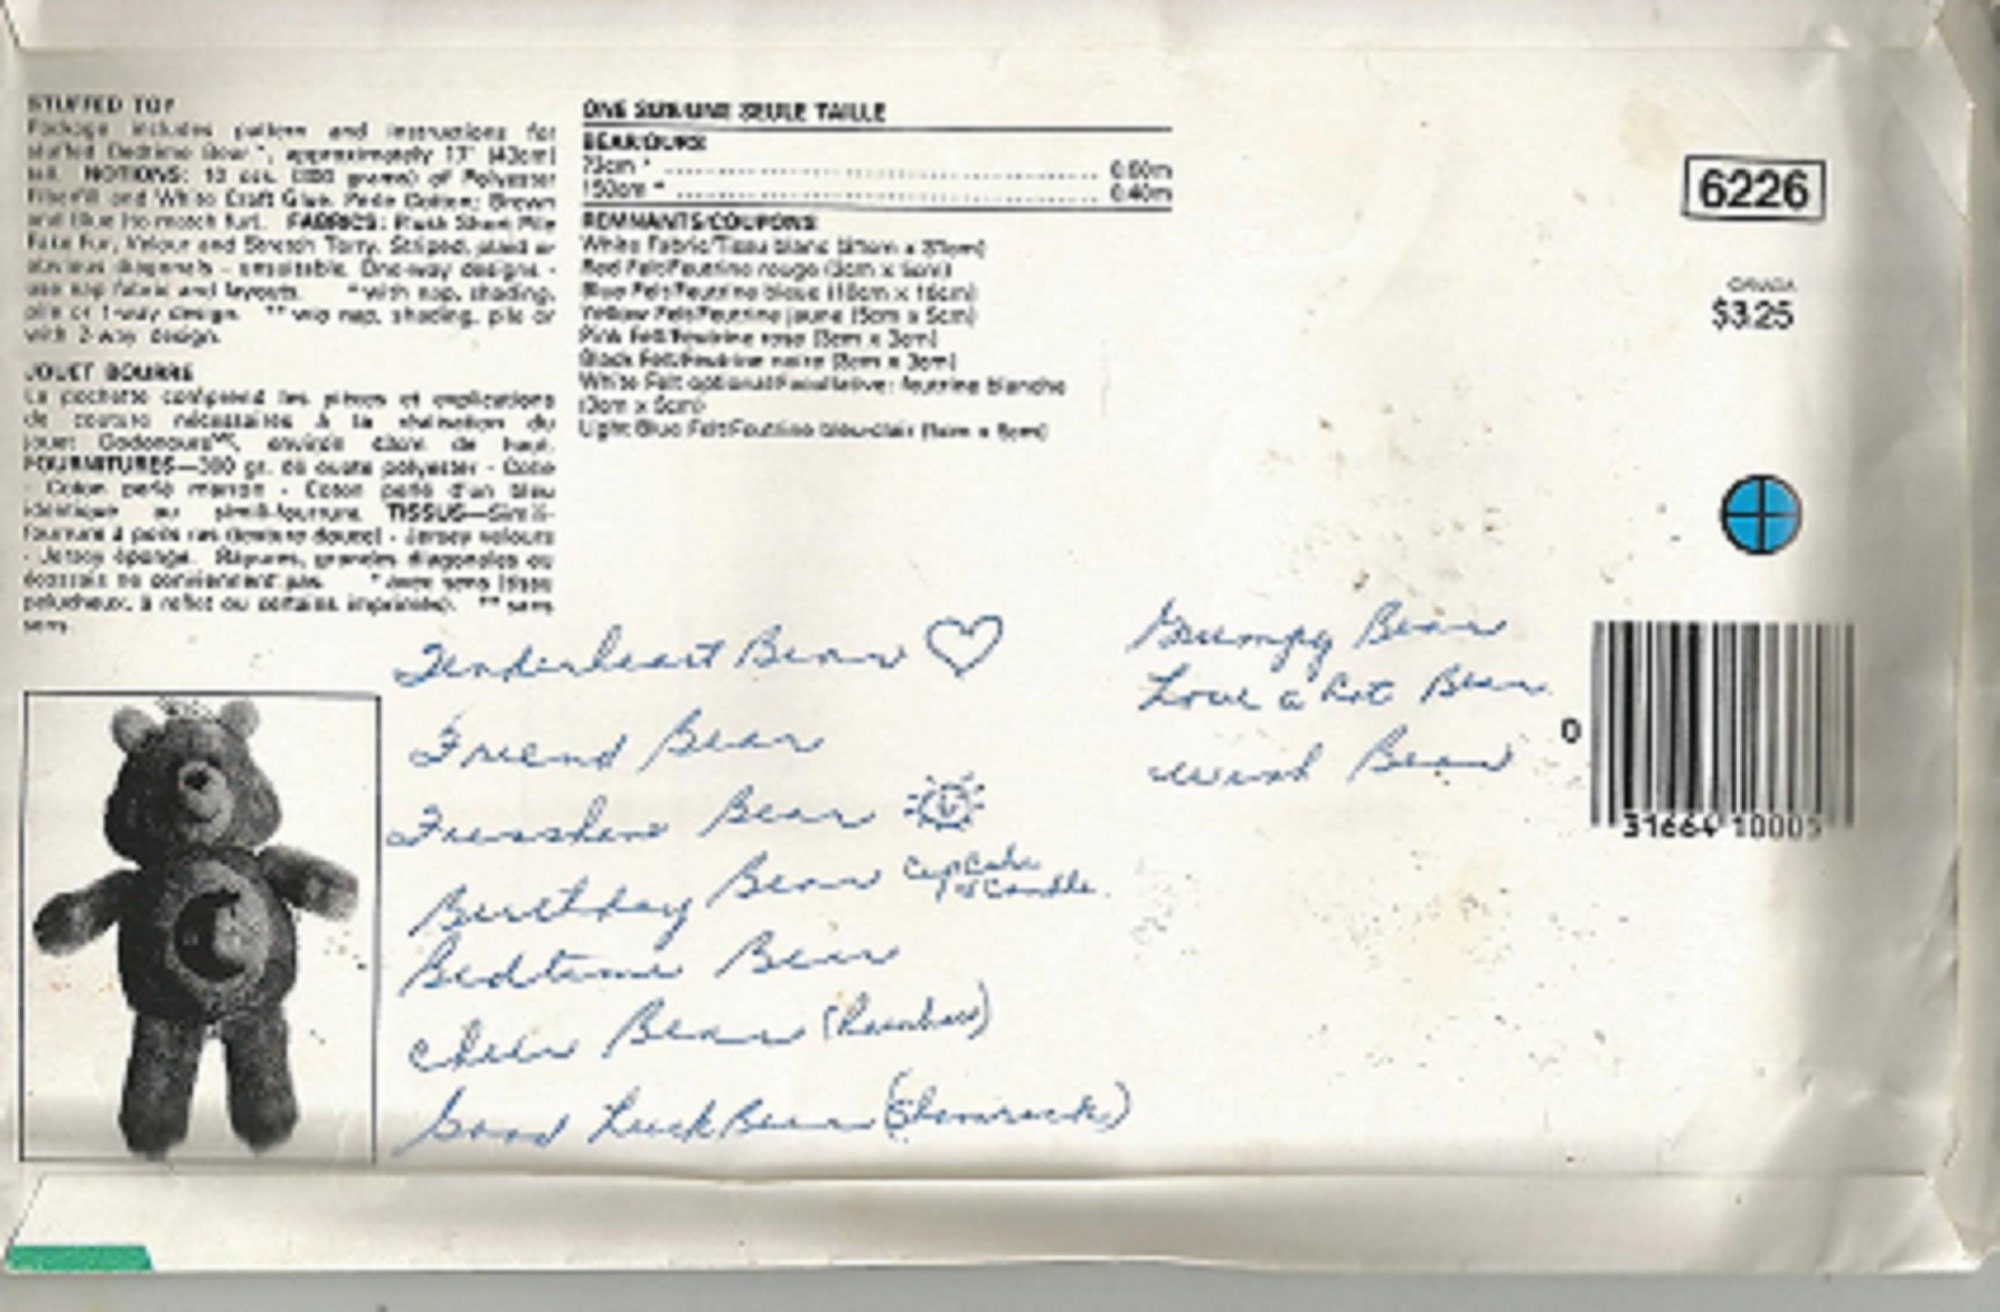 STUFFED TOY
Package includes pattern and instructions for
stuffed Bedtime Bear™, approximately 17" (43cm)
tall. NOTIONS: 10 ozs. (300 grams) of Polyester
Fiberfill and White Craft Glue. Perle Cotton: Brown
and Blue (to match fur). FABRICS: Plush Short Pile
Fake Fur, Velour and Stretch Terry. Striped, plaid or
obvious diagonals - unsuitable. One-way designs -
use nap fabric and layouts. *with nap, shading,
pile or 1-way design. ** w/o nap, shading, pile or
with 2-way design.
JOUET BOURRE
La pochette comprend les pièces et explications
de couture nécessaires à la réalisation du
jouet environ 43cm de haut.
FOURNITURES—300 gr. de ouate polyester - Colle
- Coton perlé marron - Coton perlé d'un bleu
identique au simili-fourrure. TISSUS—Simili-
fourrure à poils ras (texture douce) - Jersey velours
- Jersey éponge. Rayures, grandes diagonales ou
écossais ne conviennent pas. * avec sens (tissu
pelucheux, à reflet ou certains imprimés). ** sans
sens.
ONE SIZE/UNE SEULE TAILLE
BEAR/OURS
115cm * 0.50m
150cm * 0.40m
REMNANTS/COUPONS
White Fabric/Tissu blanc
Red Felt/Feutrine rouge
Blue Felt/Feutrine bleue
Yellow Felt/Feutrine jaune (5cm x 5cm)
Pink Felt/Feutrine rose
Black Felt/Feutrine noire
White Felt optional/Facultative: feutrine blanche
Light Blue Felt/Feutrine bleu-clair
6226
CANADA
$3.25
0
31664 10005
Tenderheart Bear
Friend Bear
Bear
Birthday Bear Cupcake
Candle
Bedtime Bear
Cheer Bear (Rainbow)
Good Luck Bear (Shamrock)
Grumpy Bear
Love a lot Bear
Wish Bear